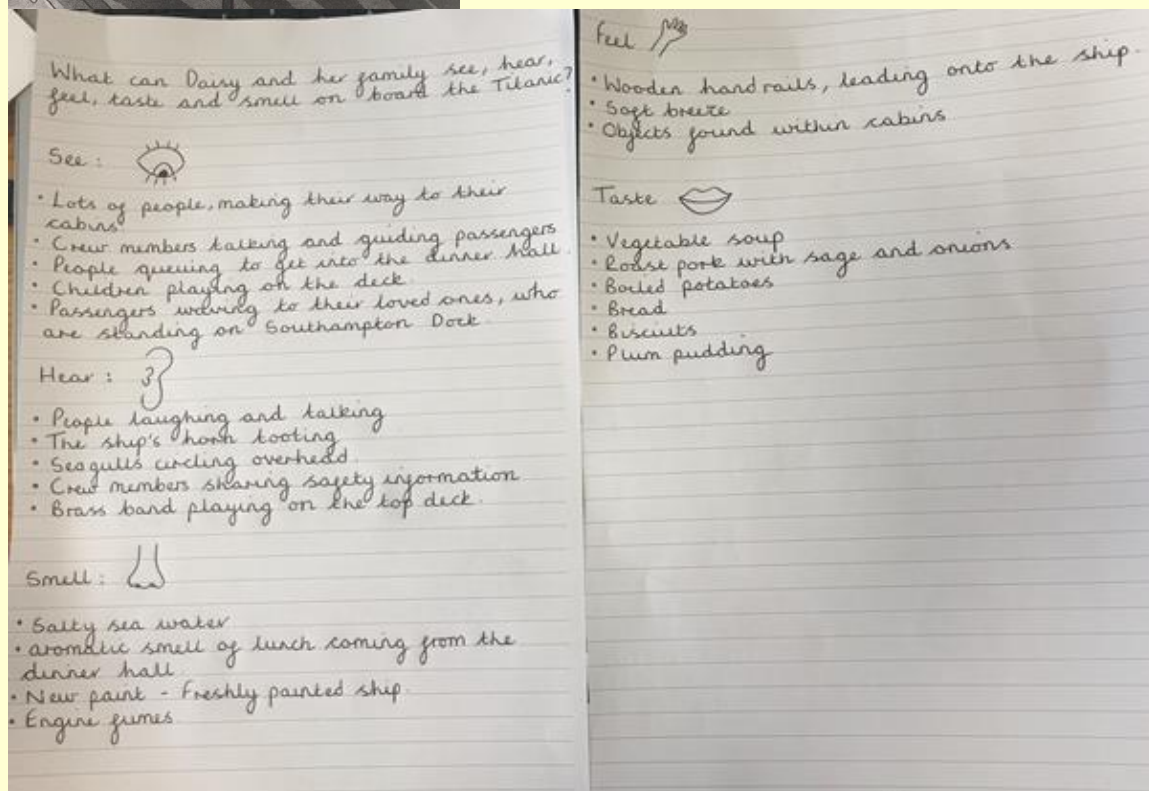 What can Daisy and her family see, hear,
feel, taste and smell on board the Titanic?
See :
• Lots of people, making their way to their
cabins
• Crew members talking and guiding passengers
• People queuing to get into the dinner hall.
• Children playing on the deck.
• Passengers waving to their loved ones, who
are standing on Southampton Dock.
Hear :
• People laughing and talking
• The ship's horn tooting
• Seagulls circling overhead.
• Crew members sharing safety information
• Brass band playing on the top deck.
Smell :
• Salty sea water
• aromatic smell of lunch coming from the
dinner hall
• New paint - Freshly painted ship.
• Engine fumes
Feel
• Wooden hand rails, leading onto the ship.
• Soft breeze
• Objects found within cabins
Taste
• Vegetable soup
• Roast pork with sage and onions
• Boiled potatoes
• Bread
• Biscuits
• Plum pudding